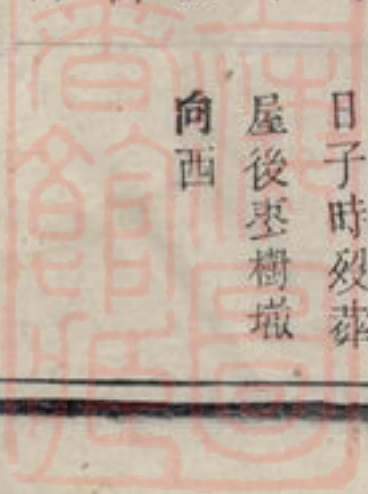 日子時歿葬
屋後枣樹墈
向西